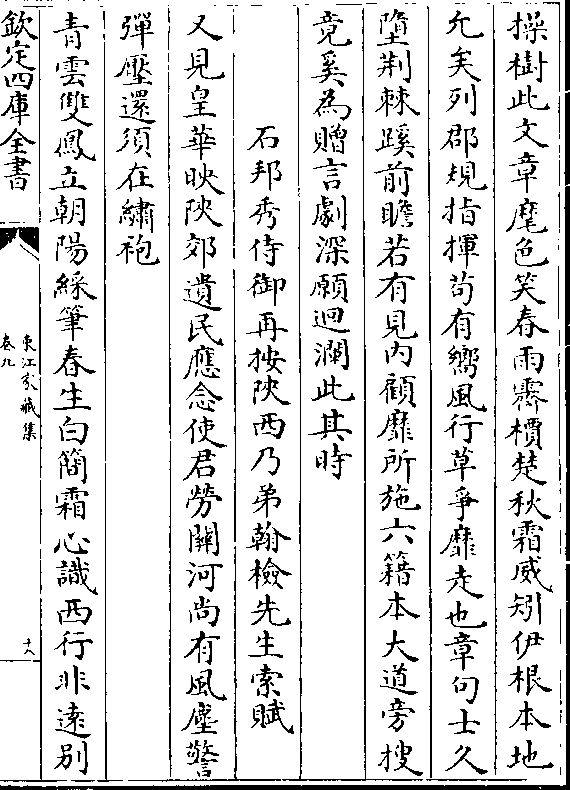 操樹此文章麾色笑春雨霽檟楚秋霜威矧伊根本地
允矣列郡規指揮苟有嚮風行草爭靡走也章句士久
墮荆棘蹊前瞻若有見内顧靡所施六籍本大道旁搜
竟奚為贈言劇深願迴瀾此其時
石邦秀侍御再按陜西乃弟翰檢先生索賦
又見皇華映陜郊遺民應念使君勞關河尚有風塵警
彈壓還須在繡袍
青雲雙鳳立朝陽綵筆春生白簡霜心識西行非逺别
欽定四庫全書
東江家藏集
卷九
十八